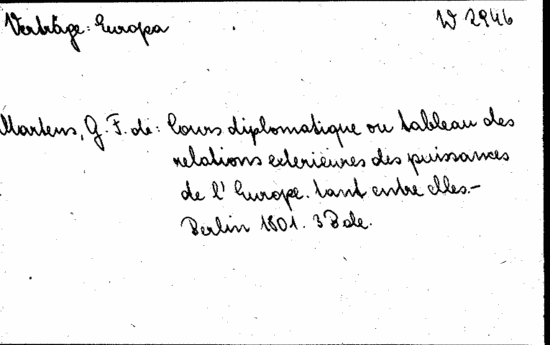 Verträge: Europa
W 2946
Martens, G. F. de: Cours diplomatique ou tableau des
relations exterieures des puissances
de l' Europe. tant entre elles.-
Berlin 1801. 3 Bde.